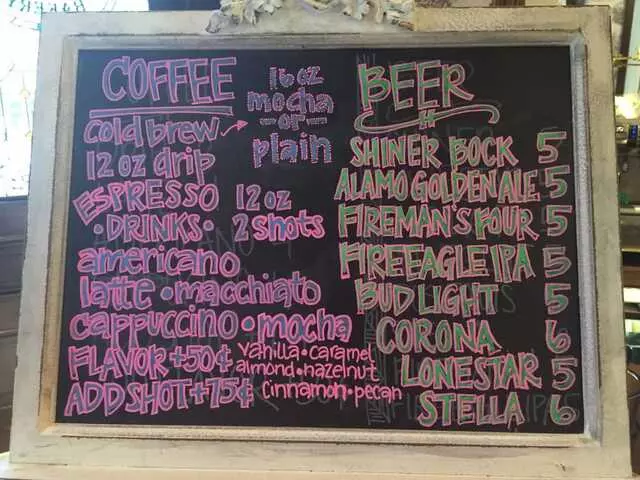 COFFEE
cold brew → 16 oz mocha -or- plain
12 oz drip
ESPRESSO •DRINKS• 12 oz 2 shots
americano
latte • macchiato
cappuccino • mocha
FLAVOR +50¢ vanilla • caramel
almond • hazelnut
cinnamon • pecan
ADD SHOT +75¢
BEER
SHINER BOCK 5
ALAMO GOLDEN ALE 5
FIREMAN'S FOUR 5
FIREEAGLE IPA 5
BUD LIGHT 5
CORONA 6
LONESTAR 5
STELLA 6